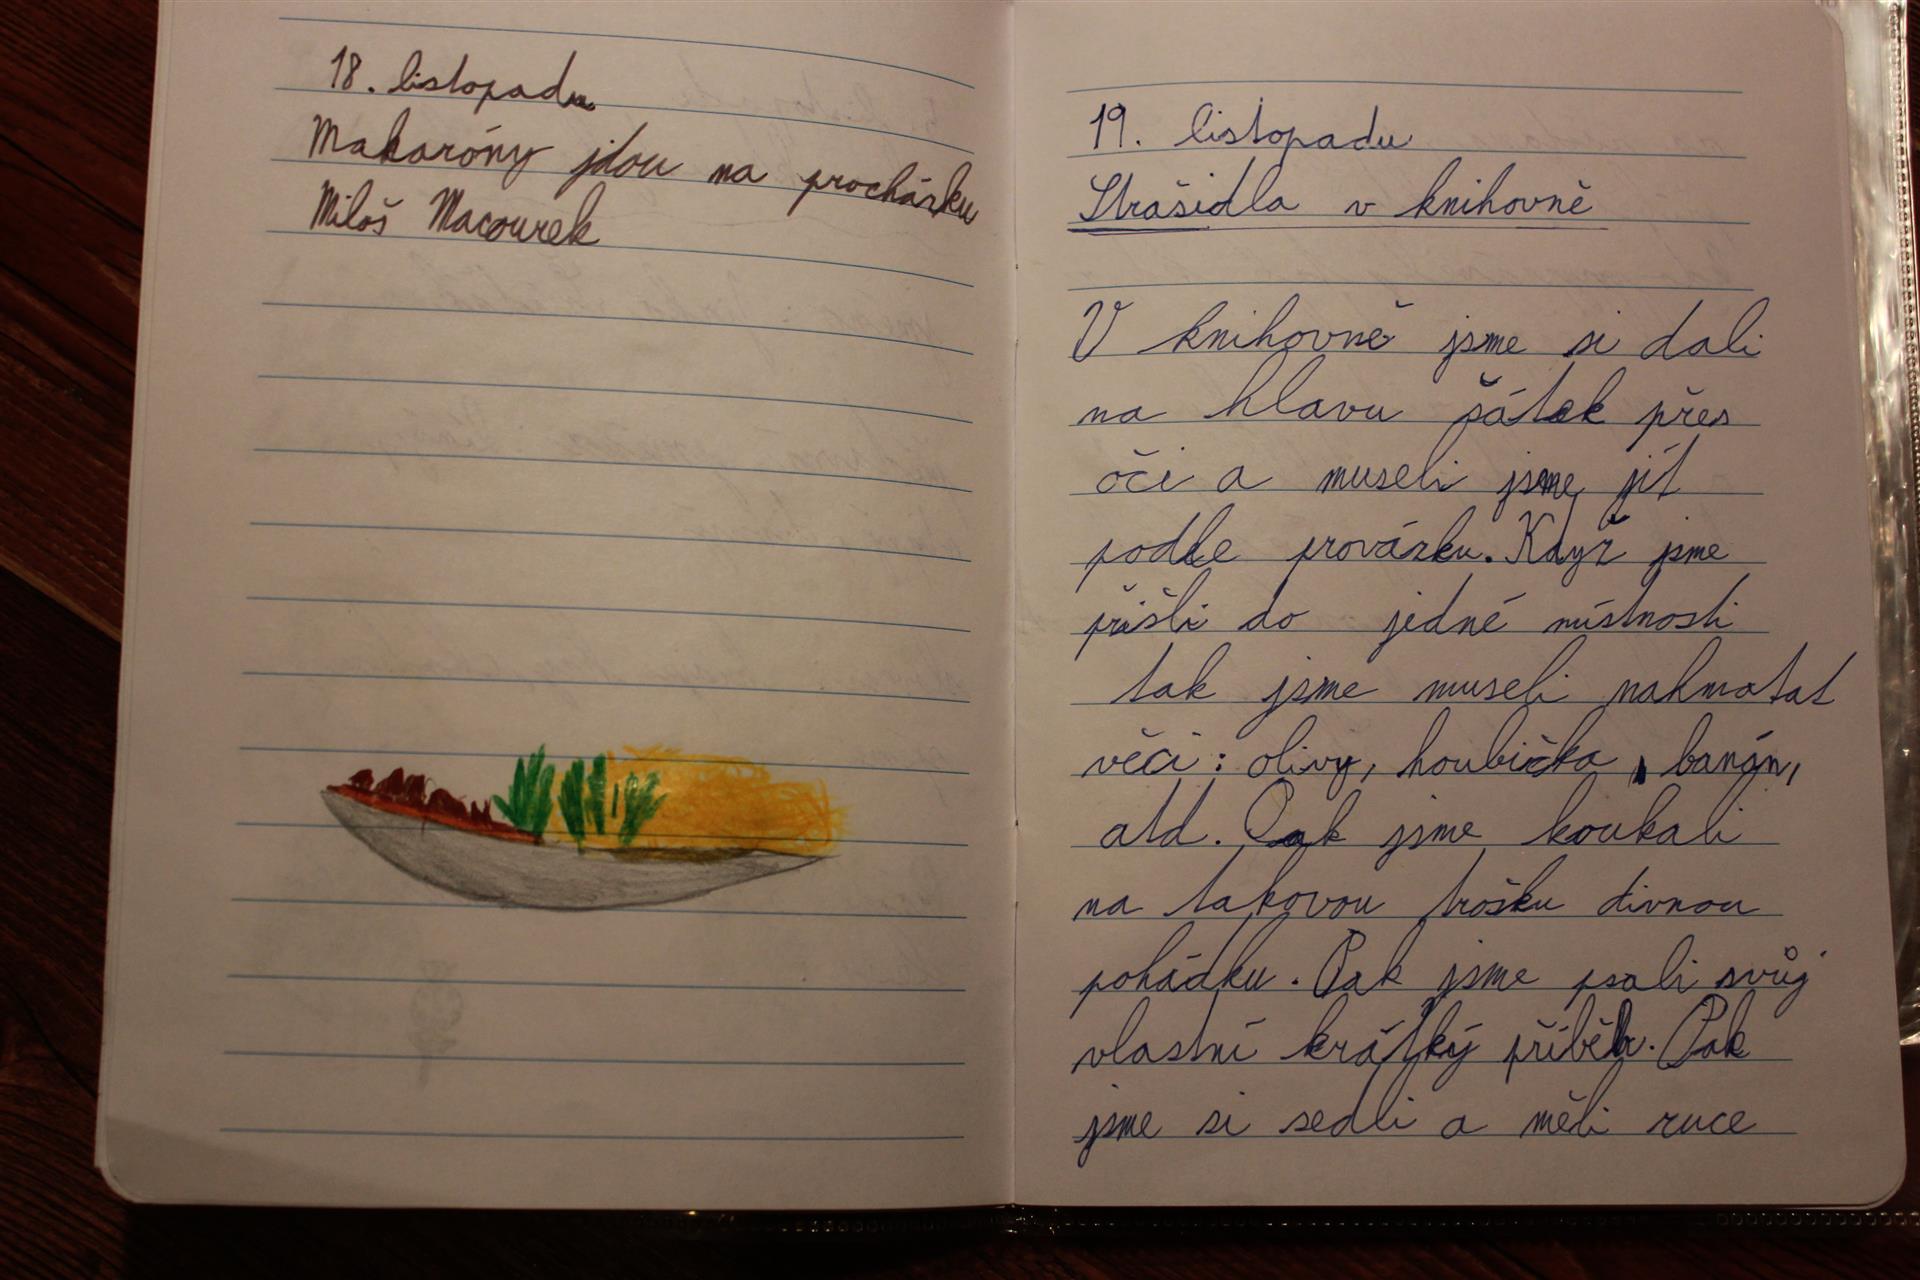 18. listopadu
Makaróny jdou na procházku
Miloš Macourek
19. listopadu
Strašidla v knihovně
V knihovně jsme si dali
na hlavu šátek přes
oči a museli jsme jít
podle provázku. Když jsme
přišli do jedné místnosti
tak jsme museli nahmatat
věci: olivy, houbička, banán,
atd. Pak jsme koukali
na takovou trošku divnou
pohádku. Pak jsme psali svůj
vlastní krátký příběh. Pak
jsme si sedli a měli ruce